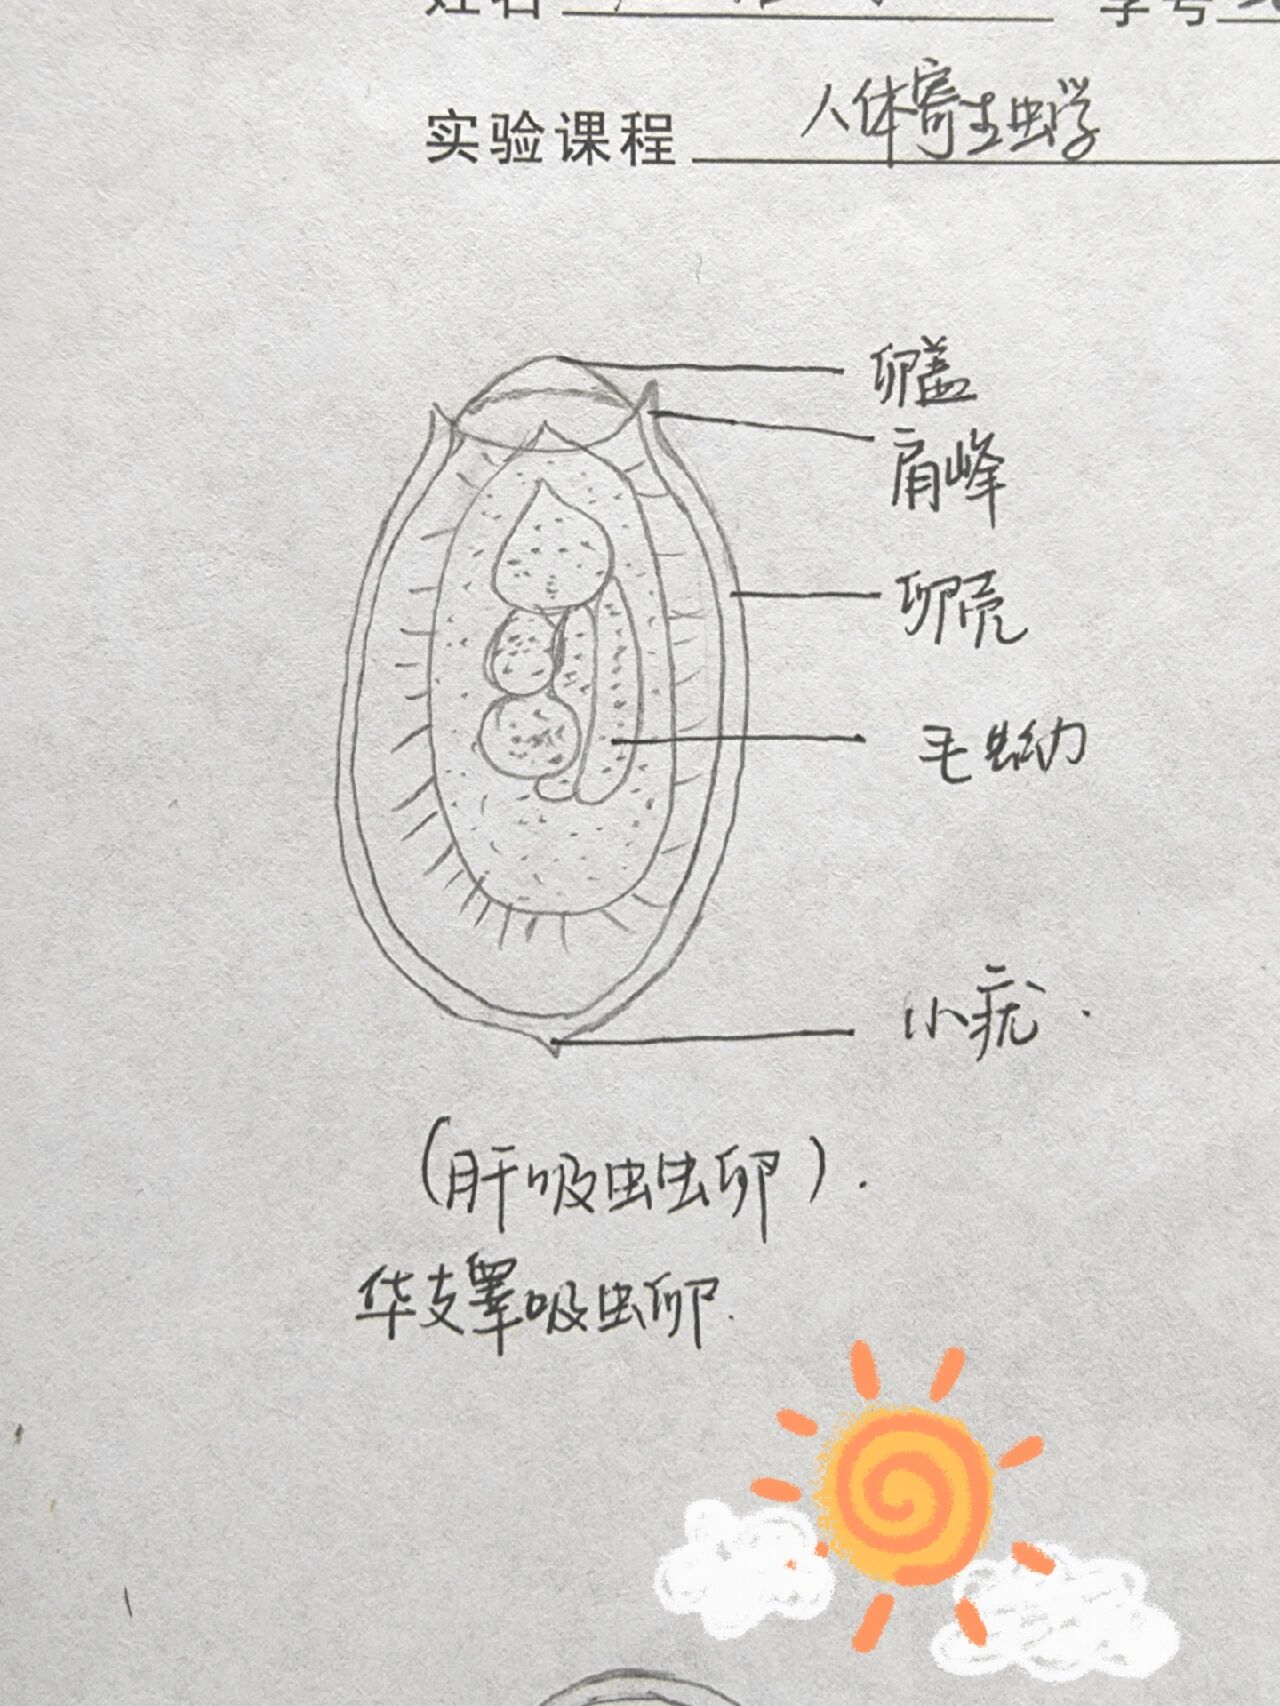 姓名 学号
实验课程 人体寄生虫学
卵盖
肩峰
卵壳
毛蚴
小疣.
(肝吸虫虫卵).
华支睾吸虫卵.